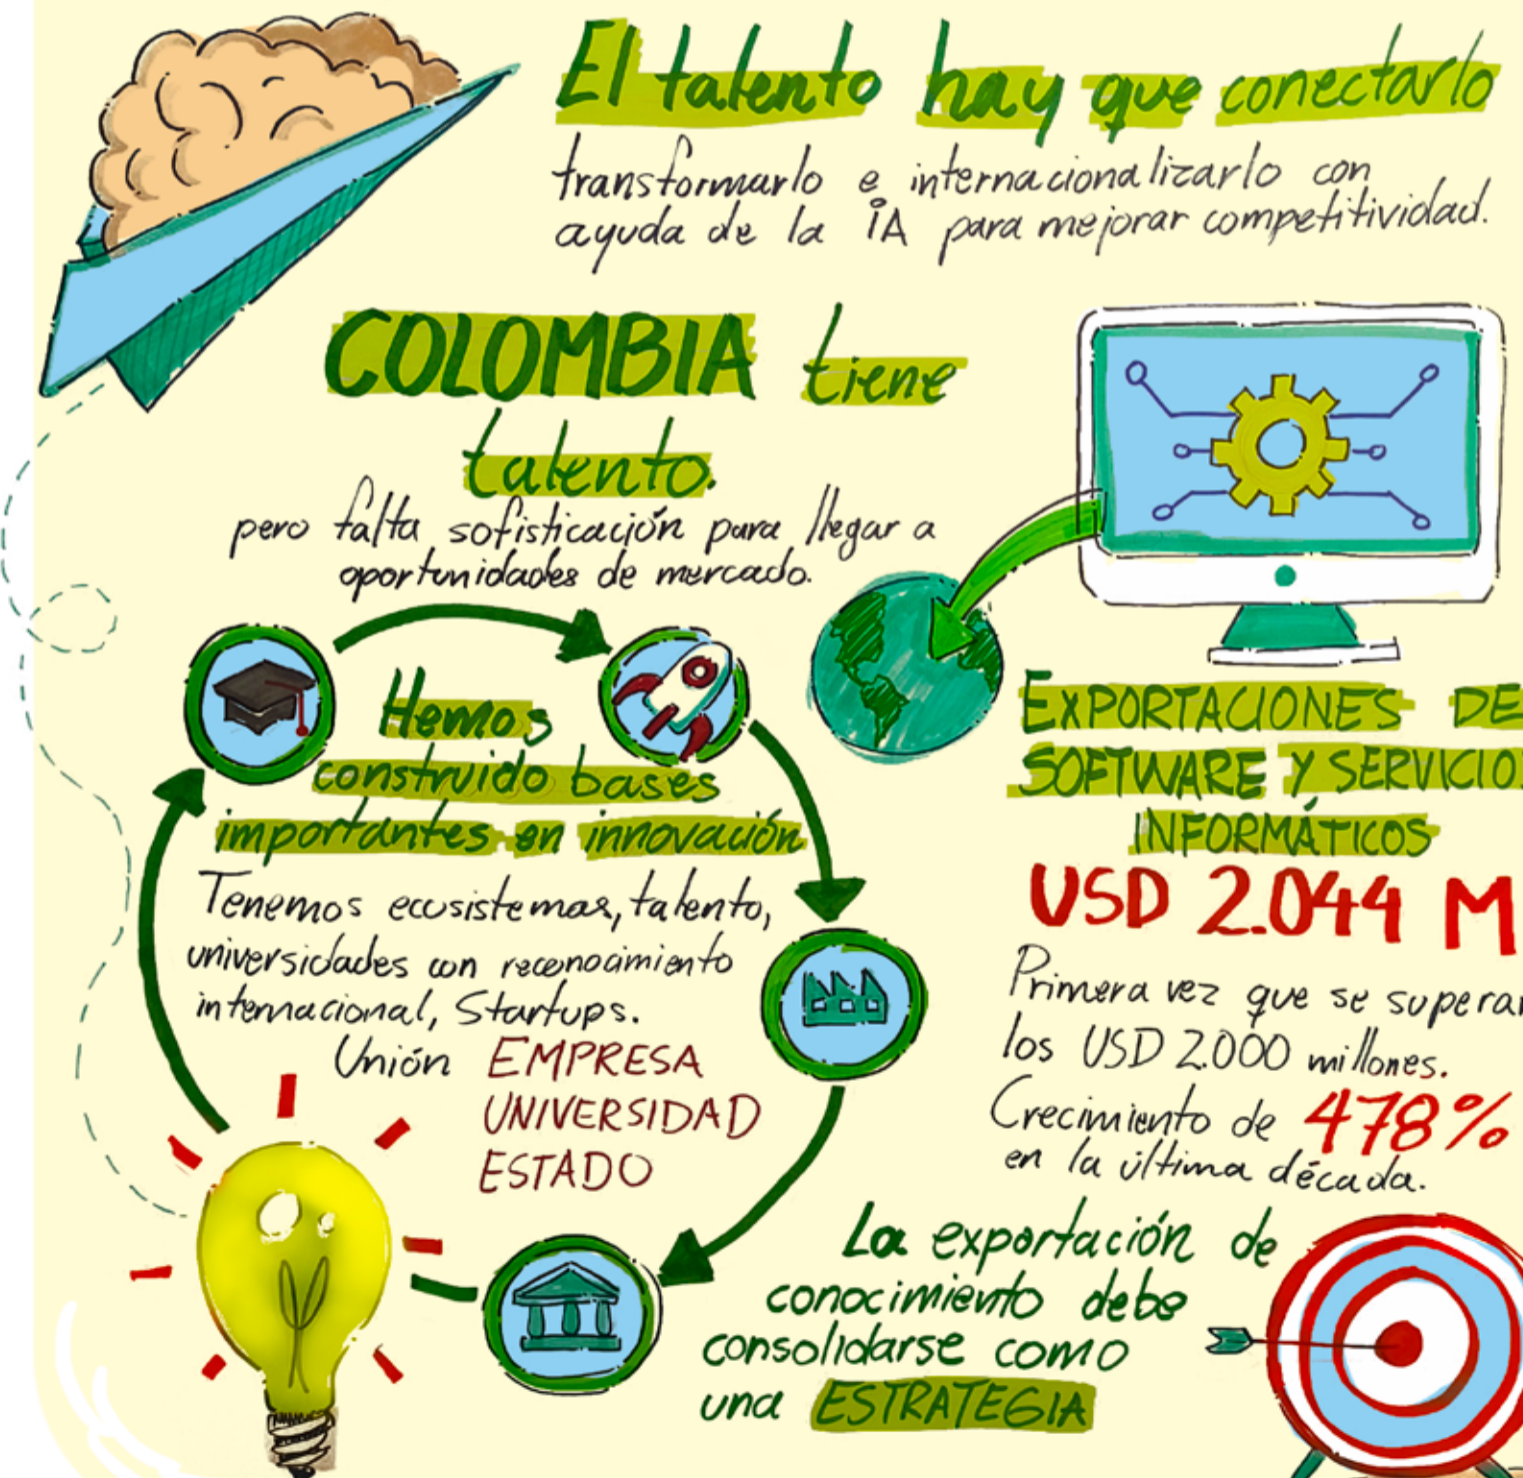 El talento hay que conectarlo
transformarlo e internacionalizarlo con
ayuda de la iA para mejorar competitividad.
COLOMBIA tiene
talento.
pero falta sofisticación para llegar a
oportunidades de mercado.
Hemos
construido bases
importantes en innovación
Tenemos ecosistemas, talento,
universidades con reconocimiento
internacional, Startups.
Unión EMPRESA
UNIVERSIDAD
ESTADO
EXPORTACIONES DE
SOFTWARE Y SERVICIOS
INFORMÁTICOS
USD 2.044 M
Primera vez que se superan
los USD 2.000 millones.
Crecimiento de 478%
en la última década.
La exportación de
conocimiento debe
consolidarse como
una ESTRATEGIA